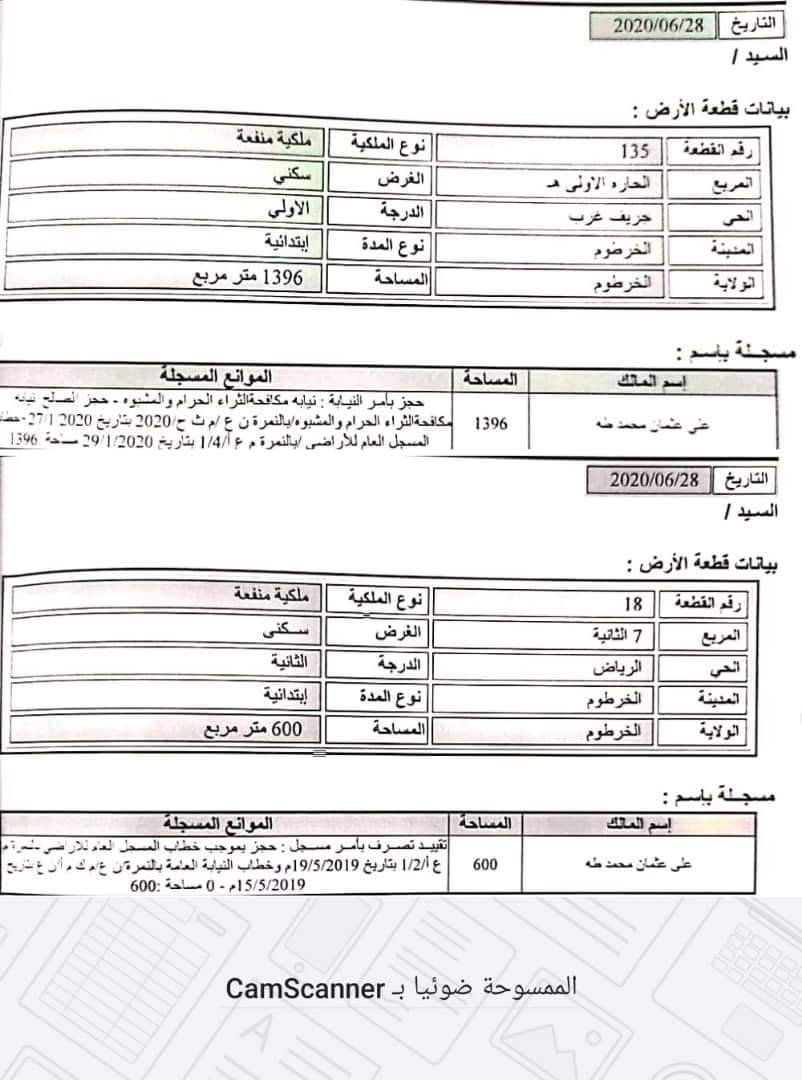 التاريخ 2020/06/28
السيد /
بيانات قطعة الأرض :
رقم القطعة 135 نوع الملكية ملكية منفعة
المربع الحاره الاولى هـ الغرض سكني
الحي جريف غرب الدرجة الاولي
المدينة الخرطوم نوع المدة إبتدائية
الولاية الخرطوم المساحة 1396 متر مربع
مسجلة بإسم :
إسم المالك المساحة الموانع المسجلة
على عثمان محمد طه 1396 حجز بأمر النيابة : نيابه مكافحةالثراء الحرام والمشبوه - حجز لصلح نيابه
مكافحةالثراء الحرام والمشبوه/بالنمرة ن ع /م ث ح/2020 بتاريخ 27/1/2020
المسجل العام للأراضي /بالنمرة م ع أ/1/4 بتاريخ 29/1/2020 مساحة 1396
التاريخ 2020/06/28
السيد /
بيانات قطعة الأرض :
رقم القطعة 18 نوع الملكية ملكية منفعة
المربع 7 الثانية الغرض سكنى
الحي الرياض الدرجة الثانية
المدينة الخرطوم نوع المدة إبتدائية
الولاية الخرطوم المساحة 600 متر مربع
مسجلة بإسم :
إسم المالك المساحة الموانع المسجلة
على عثمان محمد طه 600 تقييد تصرف بأمر مسجل : حجز بموجب خطاب المسجل العام للاراضي بالنمرة م
ع أ/1/2 بتاريخ 19/5/2019م وخطاب النيابة العامة بالنمرة ن ع/م ك م أ/ن ع بتاريخ
15/5/2019م - 0 مساحة :600
الممسوحة ضوئيا بـ CamScanner